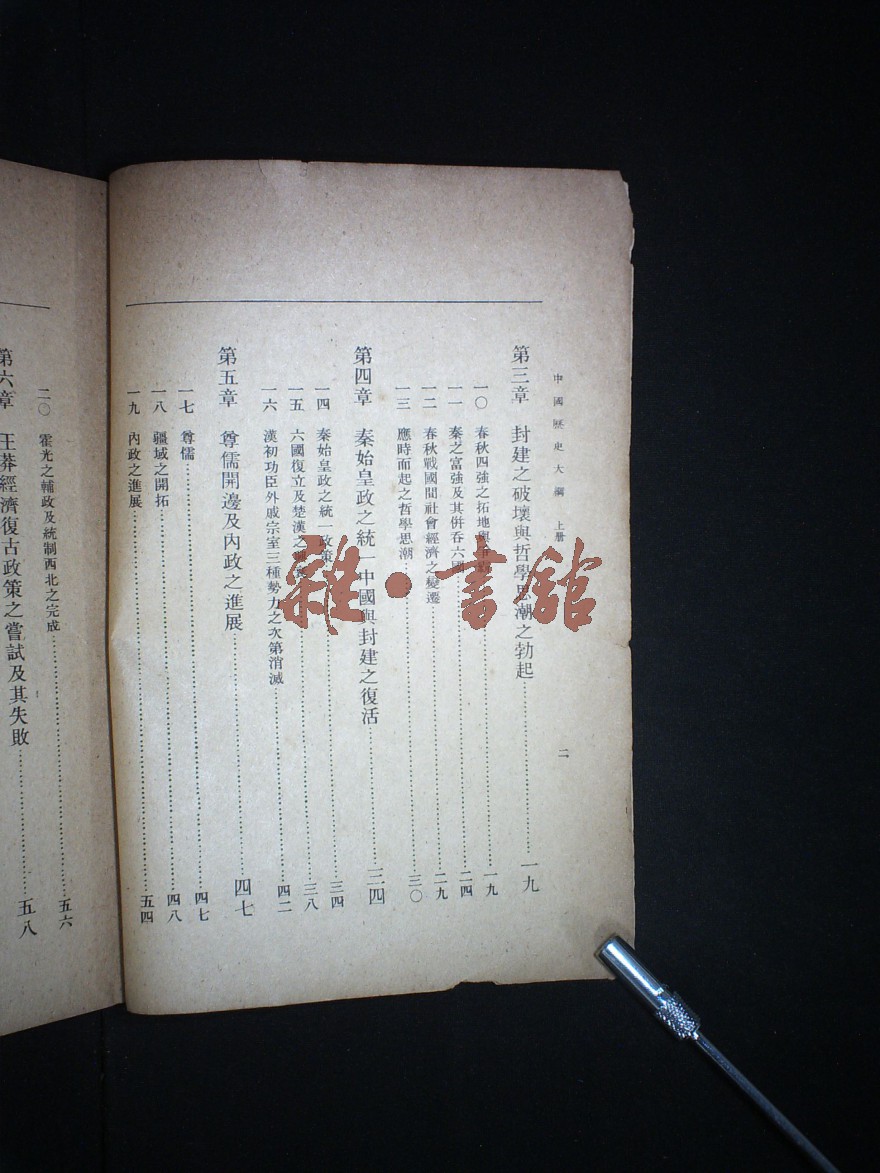 中國歷史大綱 上册
二
第三章 封建之破壞與哲學思潮之勃起 一九
一〇 春秋四強之拓地與 一九
一一 秦之富強及其併吞六國 二四
一二 春秋戰國間社會經濟之變遷 二九
一三 應時而起之哲學思潮 三〇
第四章 秦始皇政之統一中國與封建之復活 三四
一四 秦始皇政之統一政策 三四
一五 六國復立及楚漢之 三八
一六 漢初功臣外戚宗室三種勢力之次第消滅 四二
第五章 尊儒開邊及內政之進展 四七
一七 尊儒 四七
一八 疆域之開拓 四八
一九 內政之進展 五四
二〇 霍光之輔政及統制西北之完成 五六
第六章 王莽經濟復古政策之嘗試及其失敗 五八
雜·書館